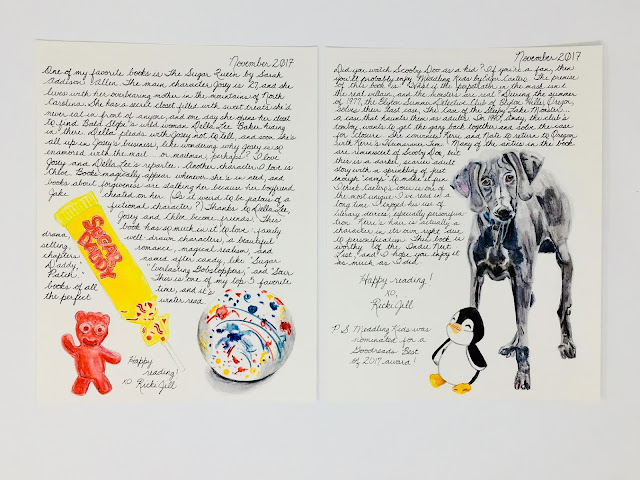 November 2017
One of my favorite books is The Sugar Queen by Sarah
Addison Allen. The main character, Josey is 27, and she
lives with her overbearing mother in the mountains of North
Carolina. She has a secret closet filled with sweet treats she'd
never eat in front of anyone, and one day she opens her closet
to find Bald Slope's wild woman Della Lee Baker hiding
in there. Della pleads with Josey not to tell, and soon she's
all up in Josey's business, like wondering why Josey is so
enamored with the mail or madman, perhaps? I love
Josey and Della Lee's repartee. Another character I love is
Chloe. Books magically appear whenever she's in need, and
books about forgiveness are stalking her because her boyfriend
Jake cheated on her. (Is it weird to be jealous of a
fictional character?) Thanks to Della Lee,
Josey and Chloe become friends. This
book has so much in it to love: family
drama, well-drawn characters, a beautiful
setting, romance, magical realism, and
chapters named after candy, like "Sugar
Daddy," "Everlasting Gobstoppers," and "Sour
Patch." This is one of my top 5 favorite
books of all time, and it's
the perfect winter read.
SUGAR
DADDY
Happy
reading!
XO Ricki Jill
November 2017
Did you watch Scooby Doo as a kid? If you're a fan, then
you'll probably enjoy Meddling Kids by Edgar Cantero. The premise
of this book is: "What if the perpetrator in the mask isn't
the real villain, and the monsters are real?" During the summer
of 1977, the Blyton Summer Detective Club of Blyton Hills, Oregon,
solves their last case, The Case of the Sleepy Lake Monster...
a case that haunts them as adults. In 1990, Andy, the club's
tomboy, wants to get the gang back together and solve the case
for closure. She convinces Kerri and Nate to return to Oregon
with Kerri's Weimaraner Tim. Many of the antics in the book
are reminiscent of Scooby Doo, but
this is a darker, scarier adult
story with a sprinkling of just
enough camp to make it fun.
I think Cantero's voice is one of
the most unique I've read in a
long time. I enjoyed his use of
literary devices, especially personifica-
tion. Kerri's hair is actually a
character in its own right due
to personification. This book is
worthy of the Indie Next
List, and I hope you enjoy it
as much as I did.
Happy reading!
XO,
Ricki Jill
P.S. Meddling Kids was
nominated for a
Goodreads Best
of 2017 award!